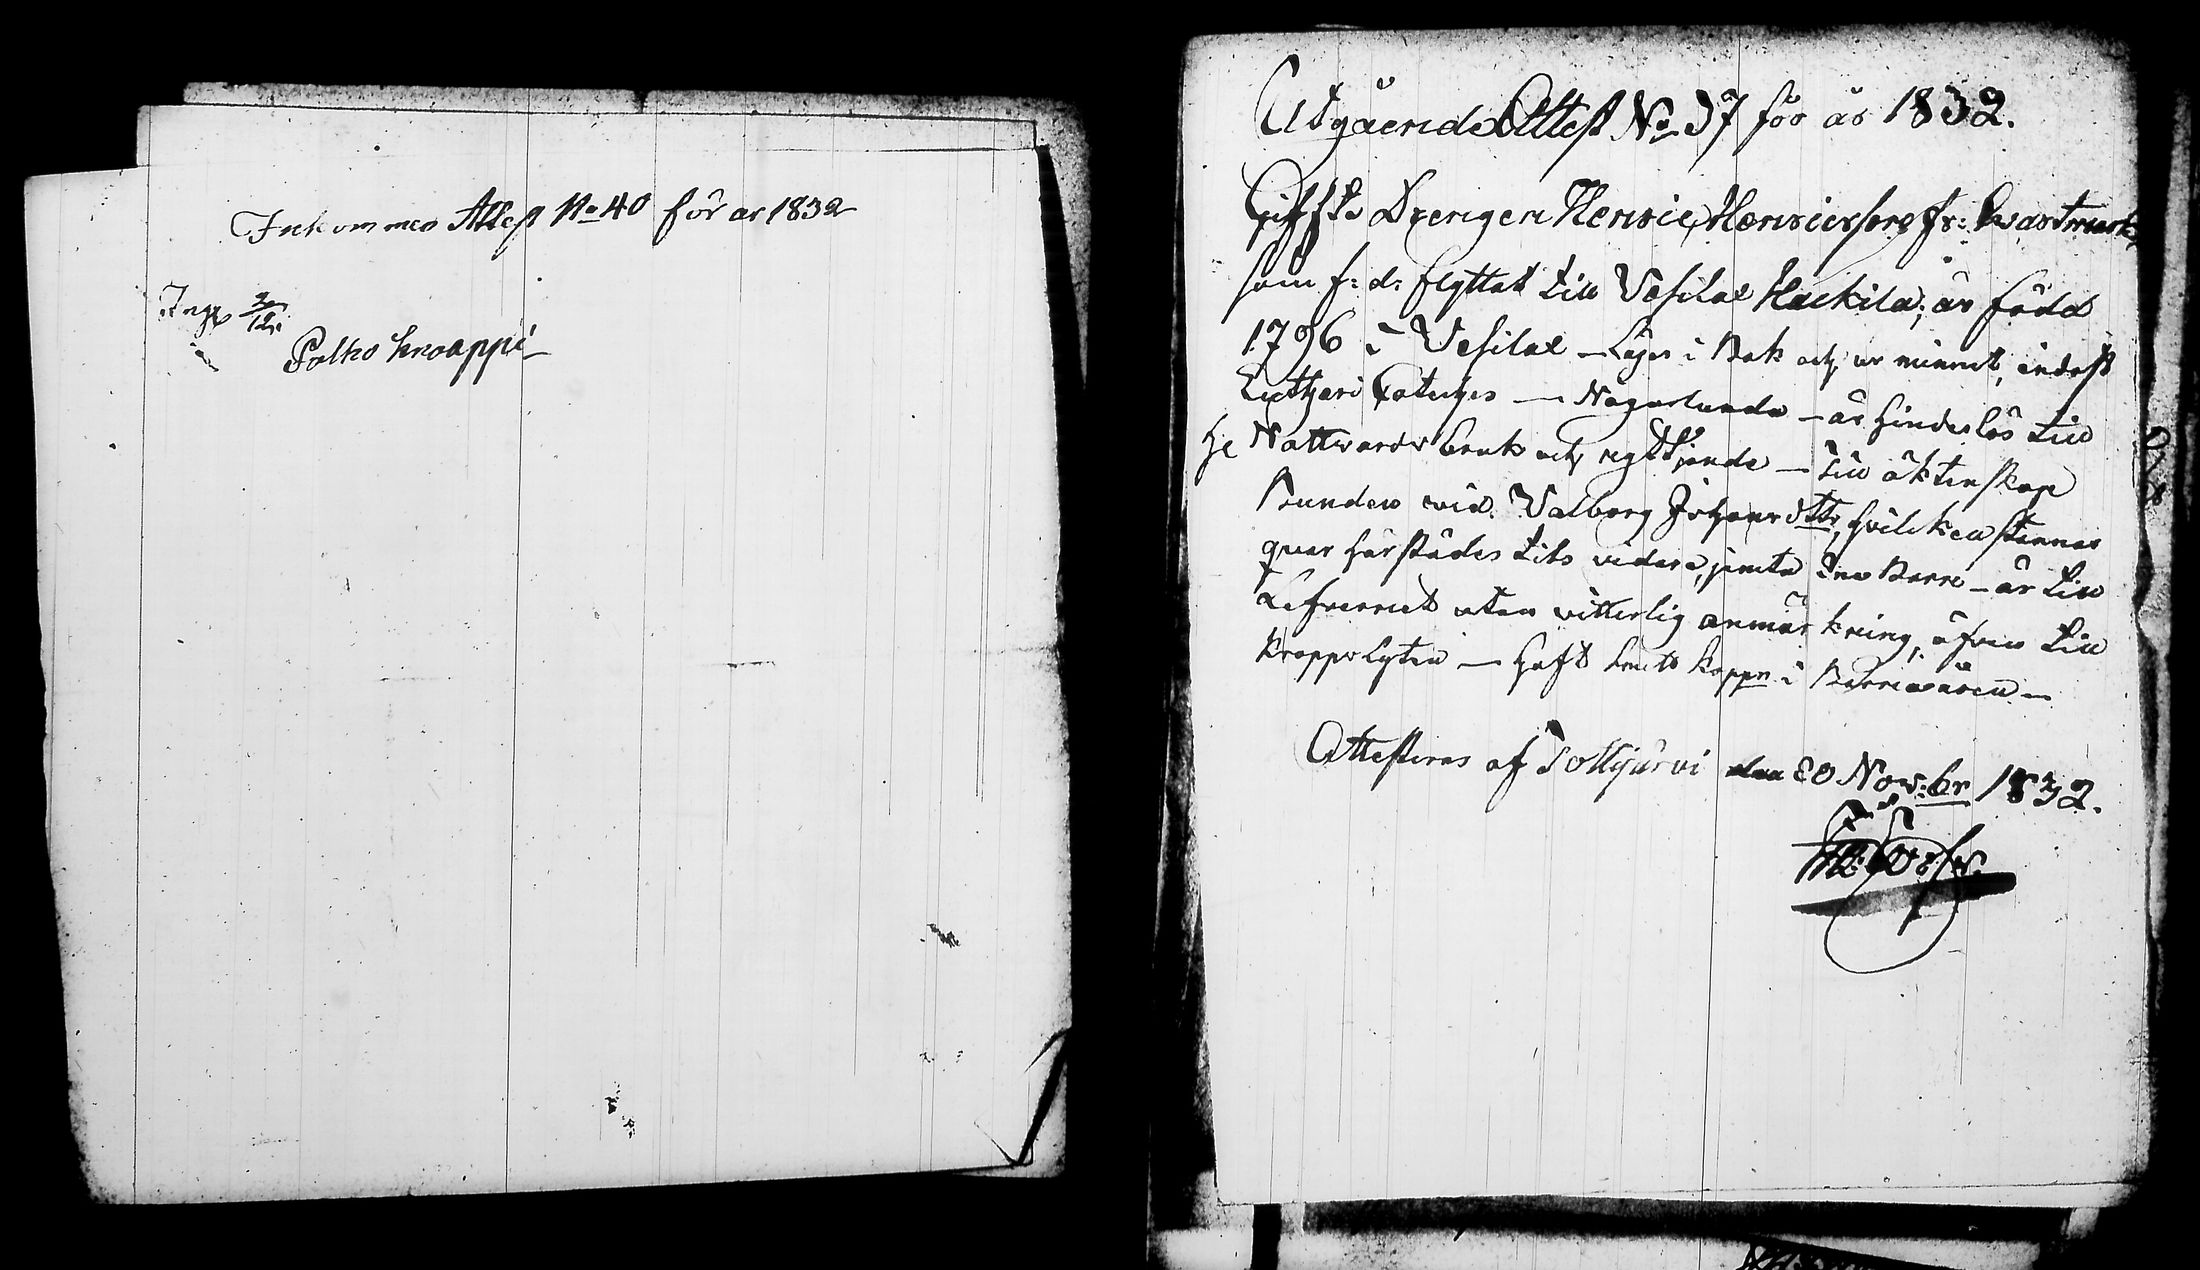 Inkommen Attest No 40 för år 1832
Ing. 3/12.
Polho knaappi
Utgående Attest No 37 för år 1832.
Giffte Drengen Henric Henricsson fr:
som f: d: flyttat till Vesilax Hackila; är född
1796 i Vesilax – Läser i Bok och ur minnet, endast
Lutheri Cateches – Någorlunda – är hinderlös till
He Nattvards bruk och – till äktenskap
bunden vid Valborg Johansdttr, hvilken stannar
quar härstädes tils vidare, jemte Barn – är till
Lefvernet utan vitterlig anmärkning, äfven till
Kroppslyten – haft koppr i Barnaåren –
Attesteras af Tottijärvi den 30 Nov:br 1832.